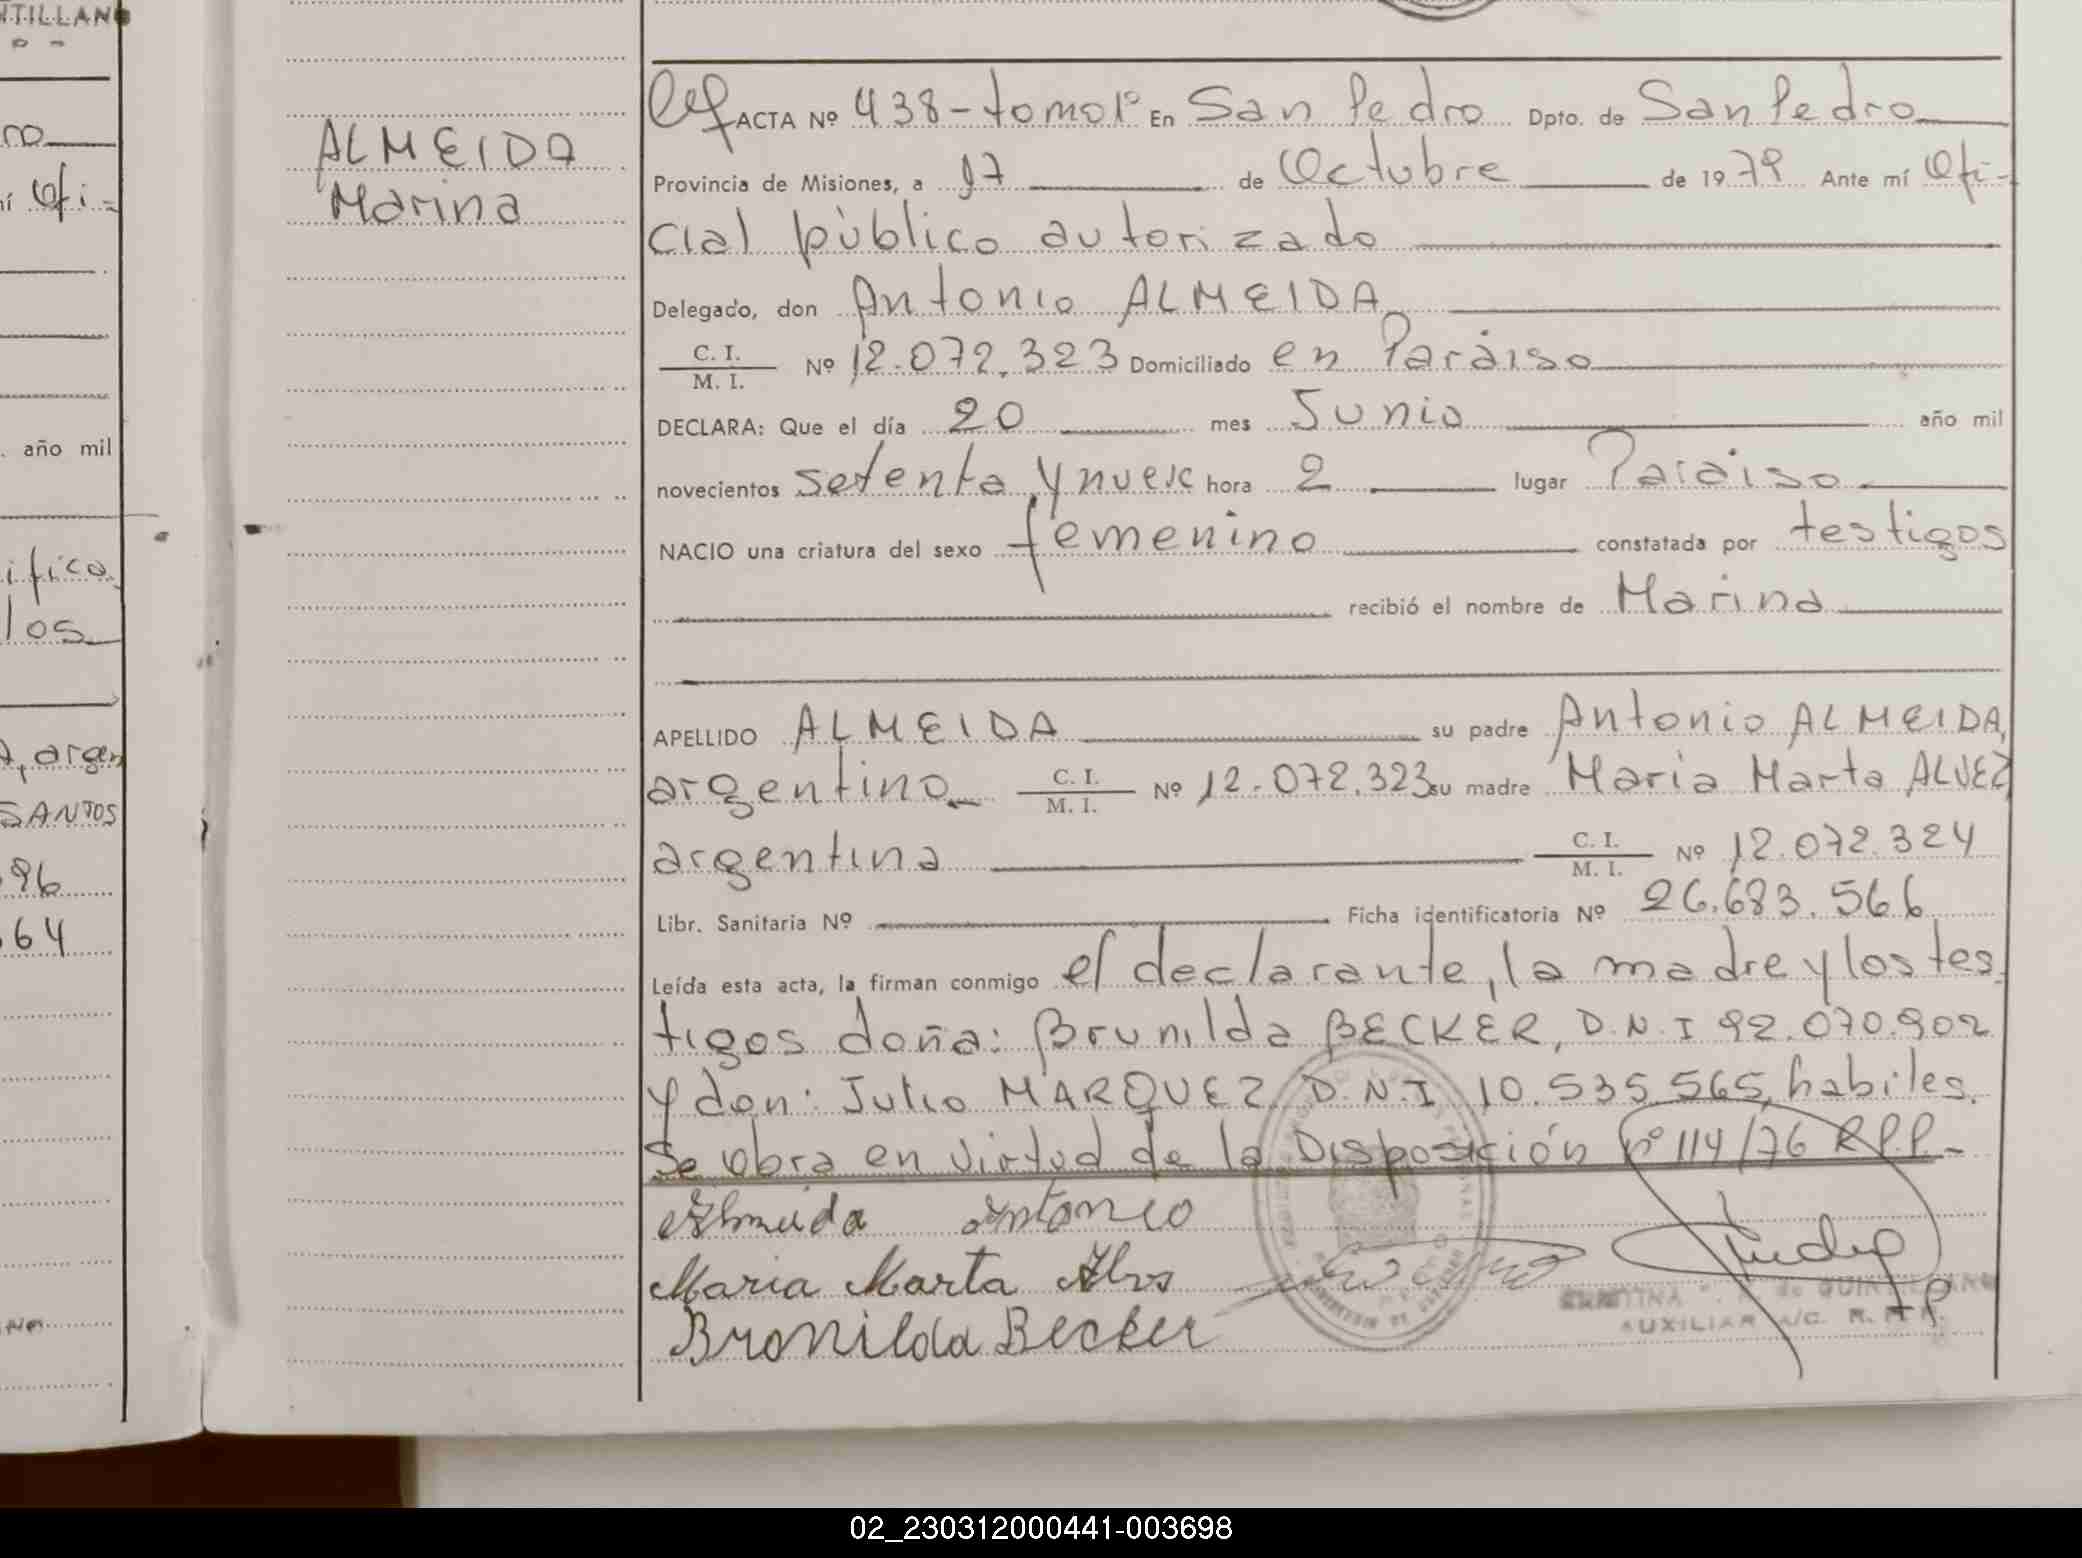 NTILLANO
ro
ní Ofi-
. año mil
ifica
los
A, argen
SANTOS
96
64
ALMEIDA
Marina
ACTA Nº 438-tomo 1º En San Pedro Dpto. de San Pedro
Provincia de Misiones, a 17 de Octubre de 1979 Ante mí Ofi-
cial público autorizado
Delegado, don Antonio ALMEIDA
C. I.
M. I. Nº 12.072.323 Domiciliado en Paraiso
DECLARA: Que el día 20 mes Junio año mil
novecientos setenta y nueve hora 2 lugar Paraiso
NACIO una criatura del sexo femenino constatada por testigos
recibió el nombre de Marina
APELLIDO ALMEIDA su padre Antonio ALMEIDA,
argentino C. I. M. I. Nº 12.072.323 su madre Maria Marta ALVEZ
argentina C. I. M. I. Nº 12.072.324
Libr. Sanitaria Nº Ficha identificatoria Nº 26.683.566
Leída esta acta, la firman conmigo el declarante, la madre y los tes-
tigos doña: Brunilda BECKER, D.N.I 92.070.902
y don: Julio MARQUEZ D.N.I 10.535.565, habiles.
Se obra en virtud de la Disposición nº 114/76 R.P.P.-
Almeida Antonio
Maria Marta Alvs
Bronilda Becker
AUXILIAR A/C. R.
02_230312000441-003698